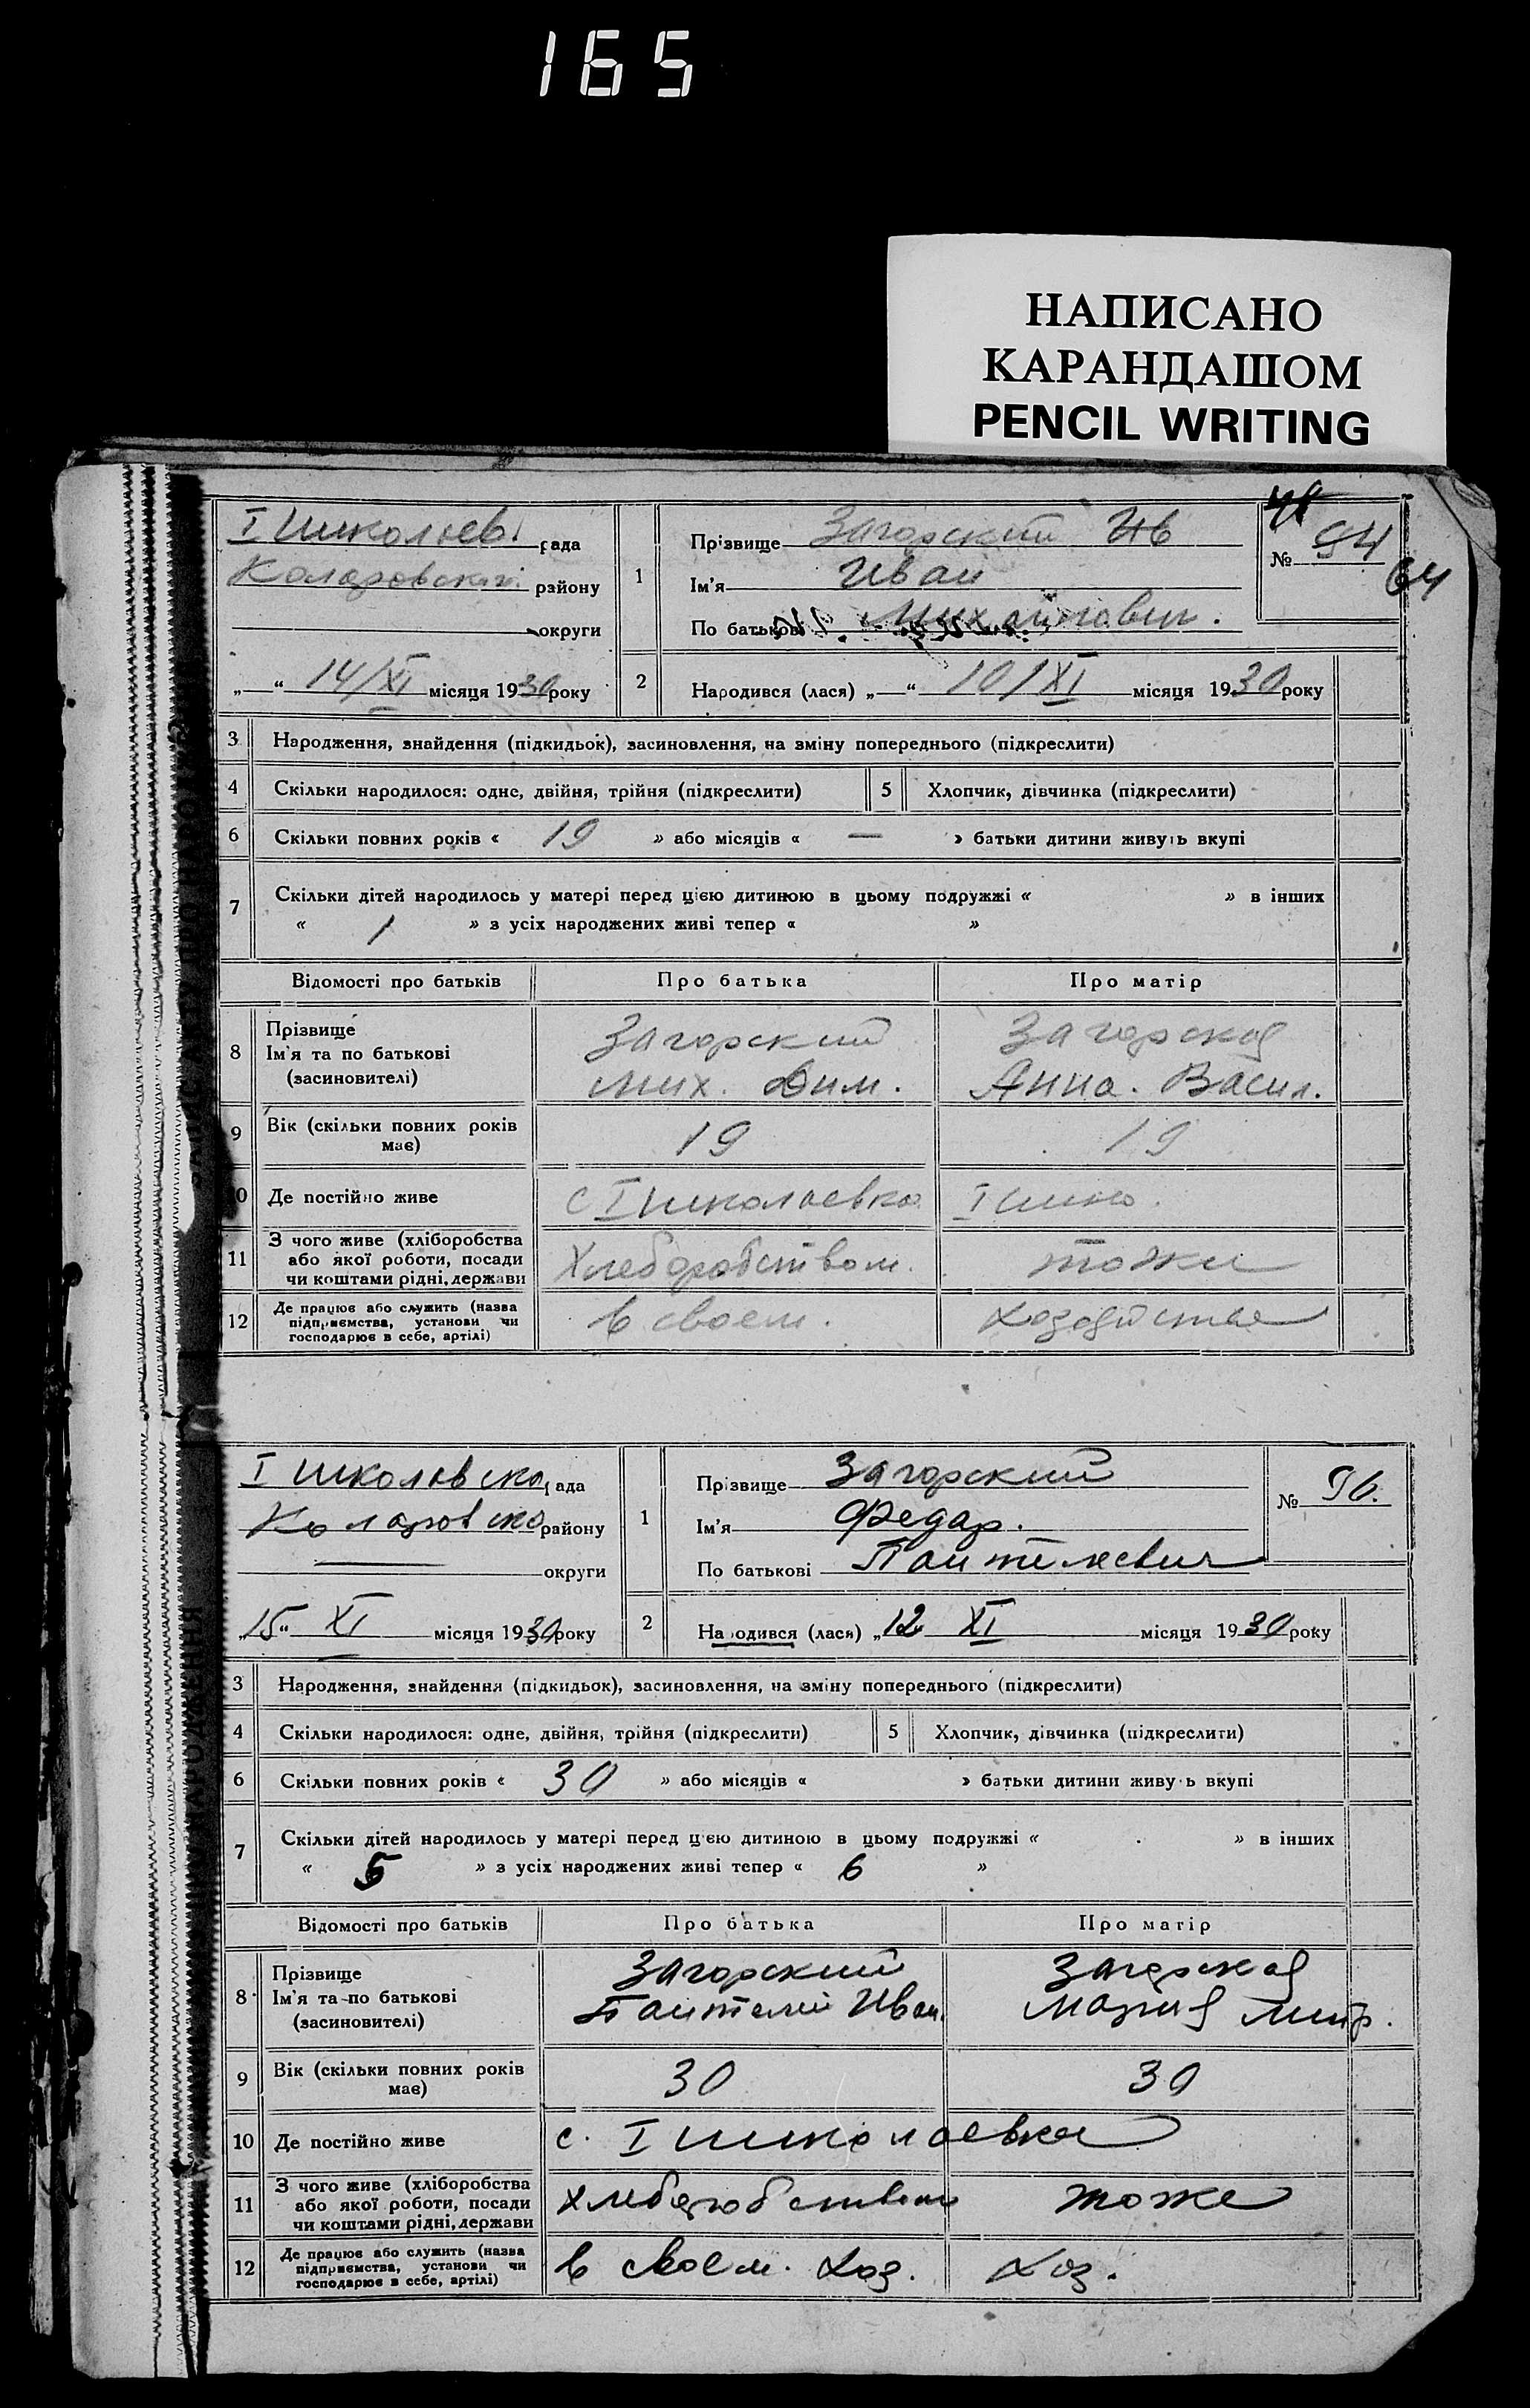 165
НАПИСАНО
КАРАНДАШОМ
PENCIL WRITING
I Николаев. рада
Коларовский району
округи
„ “ 14/XI місяця 1930 року
1
Прізвище Загорский Ив
Ім'я Иван
По батькові Михайлович.
№ 94
64
2
Народився (лася) „ “ 10/XI місяця 1930 року
3 Народження, знайдення (підкидьок), засиновлення, на зміну попереднього (підкреслити)
4 Скільки народилося: одне, двійня, трійня (підкреслити) 5 Хлопчик, дівчинка (підкреслити)
6 Скільки повних років « 19 » або місяців « — » батьки дитини живуть вкупі
7 Скільки дітей народилось у матері перед цією дитиною в цьому подружжі « » в інших
« 1 » з усіх народжених живі тепер « »
Відомості про батьків Про батька Про матір
8 Прізвище
Ім'я та по батькові
(засиновителі)
Загорский
Мих. Дим.
Загорская
Анна. Васил.
9 Вік (скільки повних років
має)
19 19
10 Де постійно живе с I Николаевка I Нико.
11 З чого живе (хліборобства
або якої роботи, посади
чи коштами рідні, держави
Хлеборобством. тоже
12 Де працює або служить (назва
підприємства, установи чи
господарює в себе, артілі)
в своем. хозяйстве
I Николовско рада
Коларовско району
округи
„15“ XI місяця 1930 року
1
Прізвище Загорский
Ім'я Федар.
По батькові Пантилеевич
№ 96.
2
Народився (лася) „12 XI місяця 1930 року
3 Народження, знайдення (підкидьок), засиновлення, на зміну попереднього (підкреслити)
4 Скільки народилося: одне, двійня, трійня (підкреслити) 5 Хлопчик, дівчинка (підкреслити)
6 Скільки повних років « 30 » або місяців « » батьки дитини живуть вкупі
7 Скільки дітей народилось у матері перед цією дитиною в цьому подружжі « » в інших
« 5 » з усіх народжених живі тепер « 6 »
Відомості про батьків Про батька Про матір
8 Прізвище
Ім'я та по батькові
(засиновителі)
Загорский
Пантелий Иван.
Загорская
Мария Митр.
9 Вік (скільки повних років
має)
30 30
10 Де постійно живе с. I Николаевка
11 З чого живе (хліборобства
або якої роботи, посади
чи коштами рідні, держави
Хлеборобством тоже
12 Де працює або служить (назва
підприємства, установи чи
господарює в себе, артілі)
в своем. хоз. хоз.